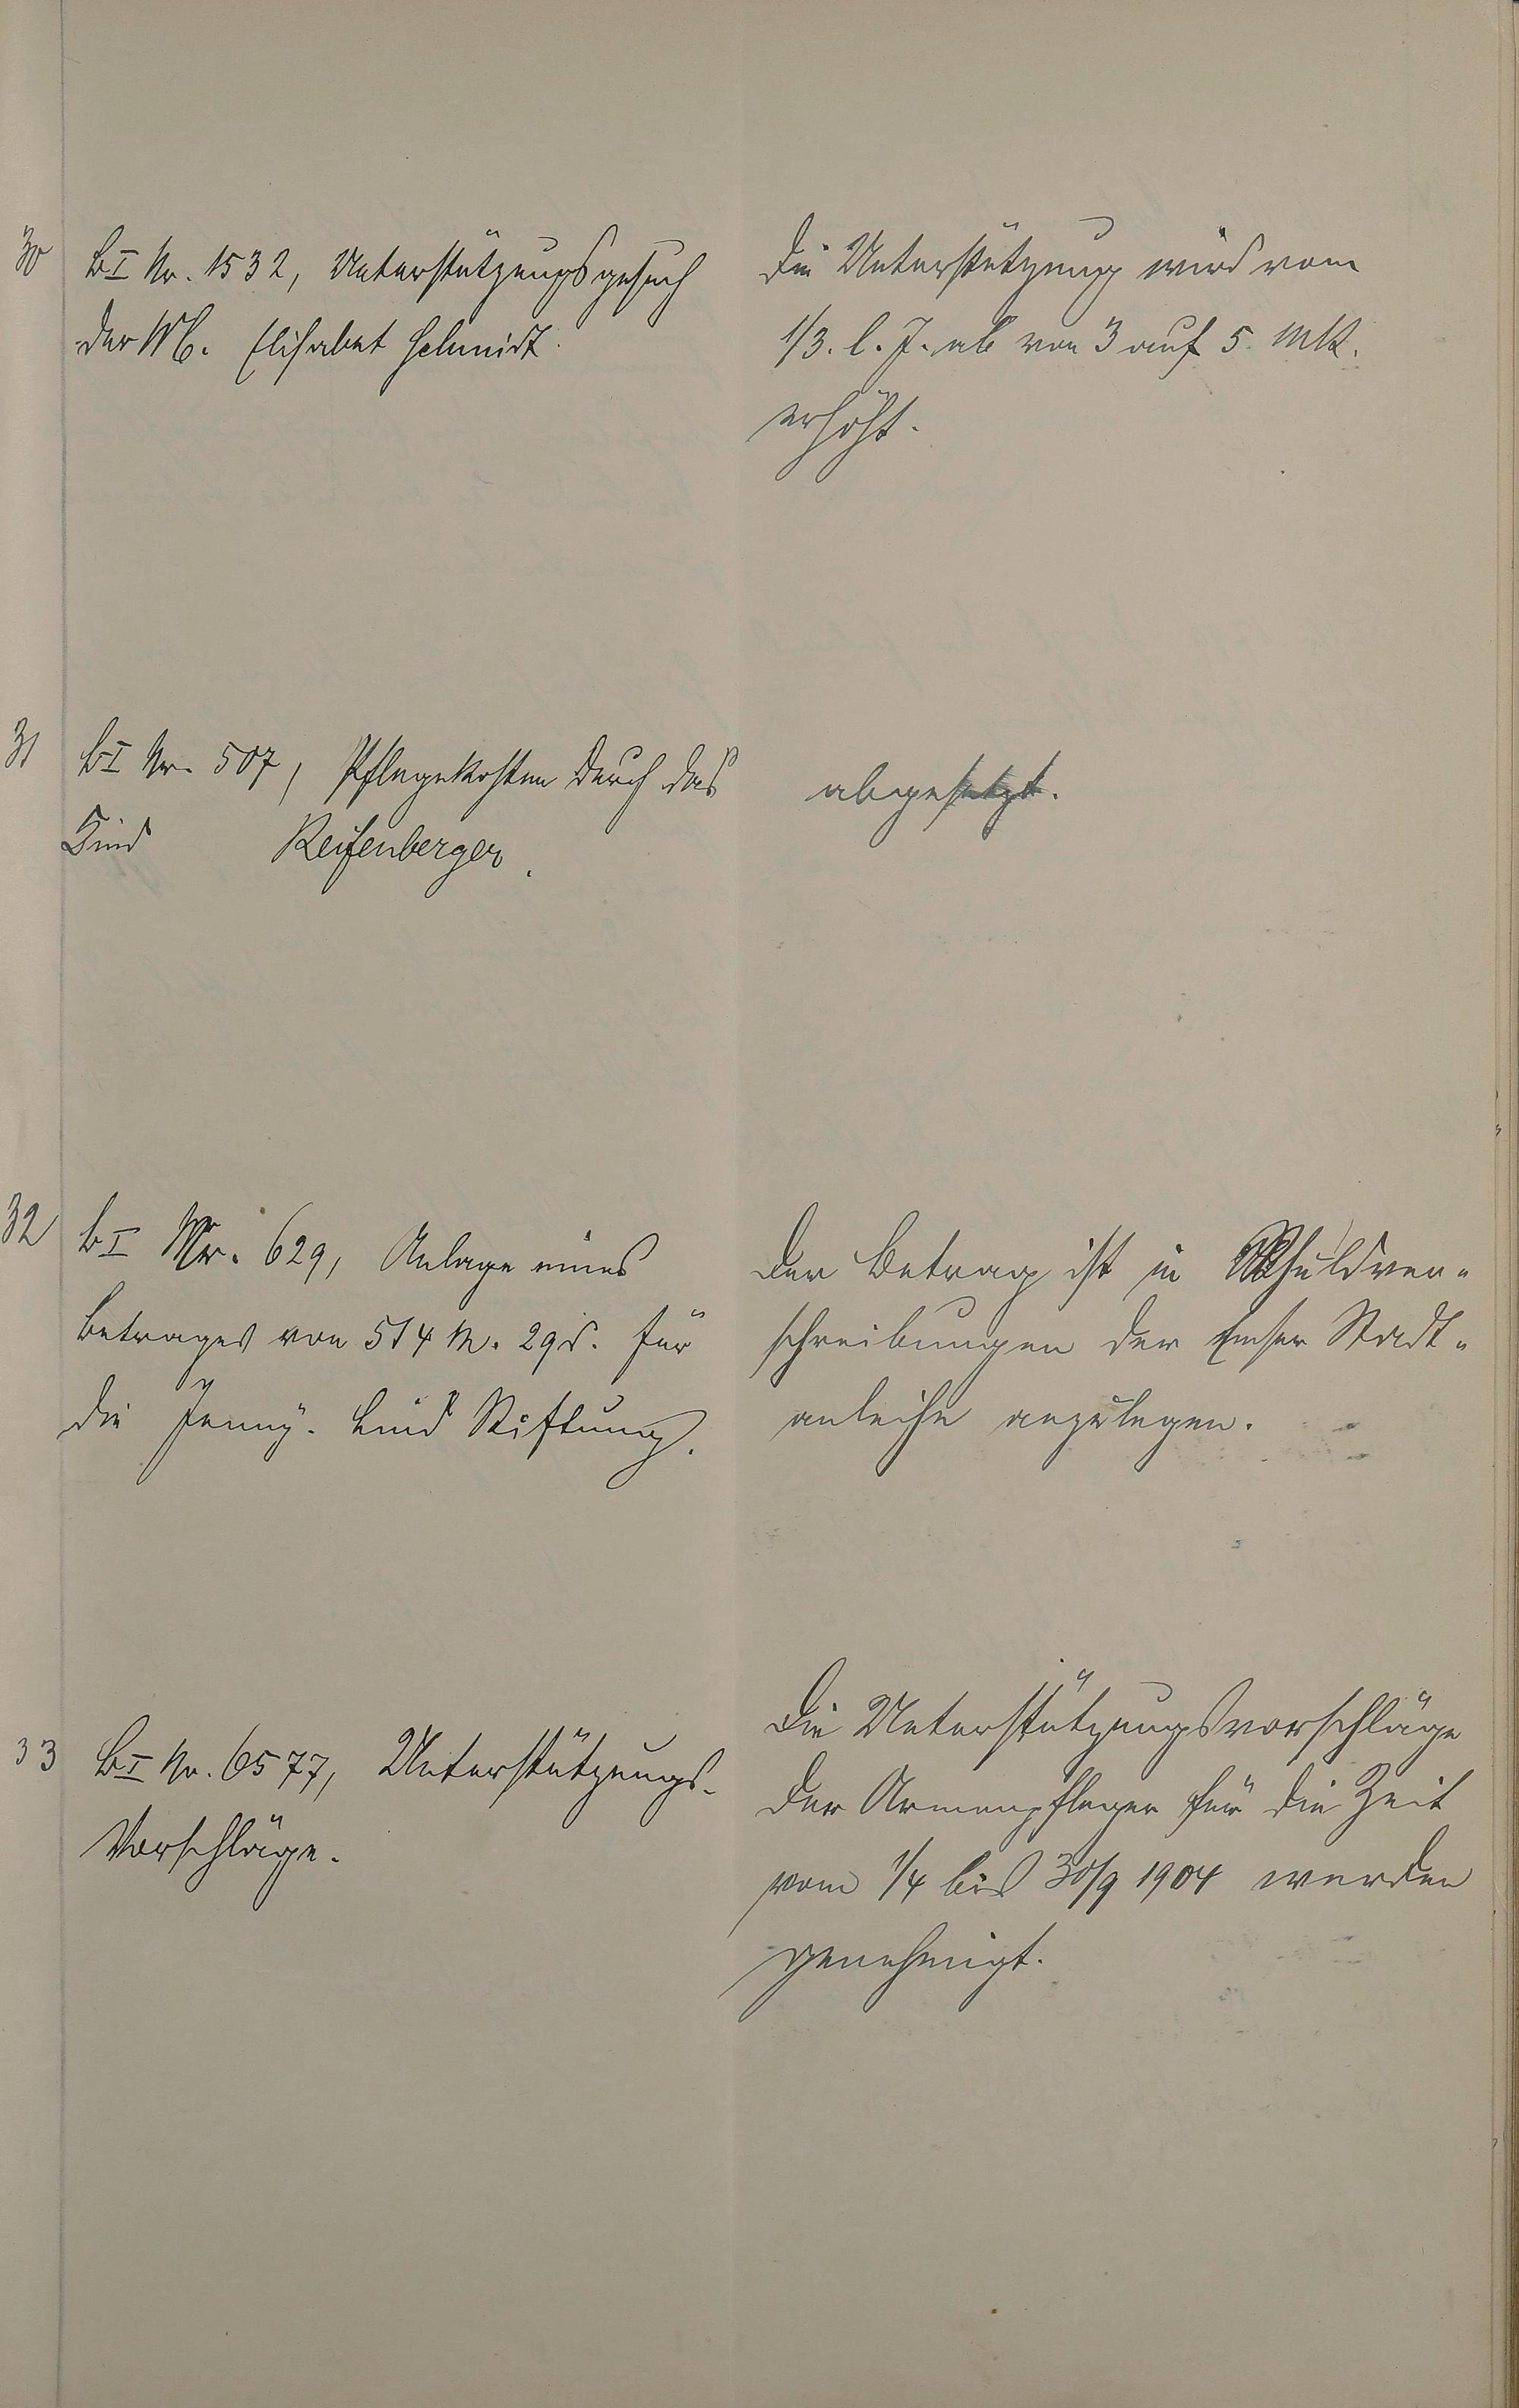 30 B I Nr. 1532, Unterstützungsgesuch
der Elisabet Schmidt.
Die Unterstützung wird vom
1/3. l. J. ab von 3 auf 5 Mk.
erhöht.
31 B I Nr. 507, Pflegekosten durch das
Kind Reifenberger.
abgesetzt.
32 B I Nr. 629, Anlage eines
Betrages von 514 M. 29 d. für
die Jenny-Lind Stiftung.
Der Betrag ist in Schuldver-
schreibungen der Emser Stadt-
anleihe anzulegen.
33 B I Nr. 6577, Unterstützungs-
Vorschläge.
Die Unterstützungsvorschläge
der Armenpfleger für die Zeit
vom 1/4 bis 30/9 1904 werden
genehmigt.